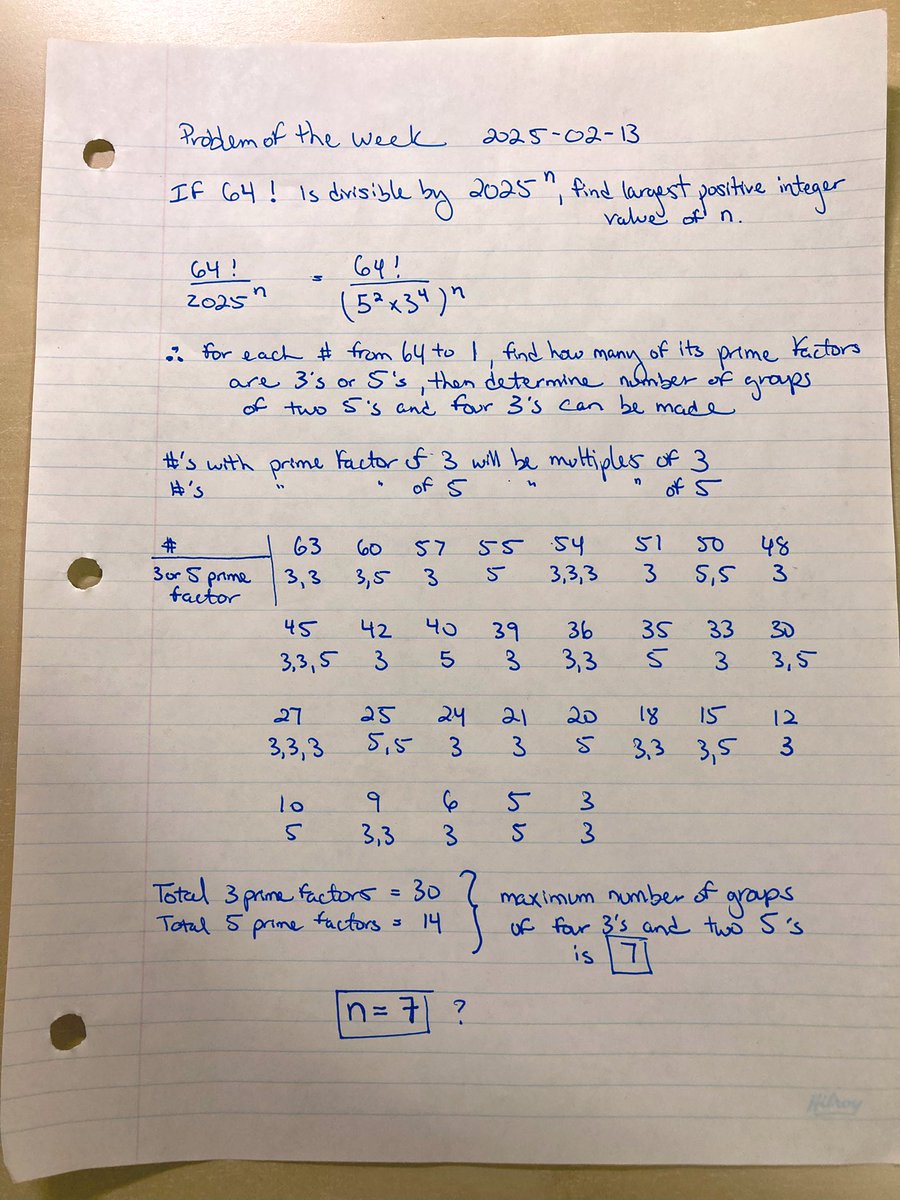 Problem of the week 2025-02-13
If 64! is divisible by 2025^n, find largest positive integer
value of n.
64! = 64!
2025^n (5²×3⁴)^n
∴ for each # from 64 to 1, find how many of its prime factors
are 3's or 5's, then determine number of groups
of two 5's and four 3's can be made
#'s with prime factor of 3 will be multiples of 3
#'s " " of 5 " " of 5
# 63 60 57 55 54 51 50 48
3 or 5 prime factor 3,3 3,5 3 5 3,3,3 3 5,5 3
45 42 40 39 36 35 33 30
3,3,5 3 5 3 3,3 5 3 3,5
27 25 24 21 20 18 15 12
3,3,3 5,5 3 3 5 3,3 3,5 3
10 9 6 5 3
5 3,3 3 5 3
Total 3 prime factors = 30 } maximum number of groups
Total 5 prime factors = 14 of four 3's and two 5's
is 7
n = 7 ?
Hilroy